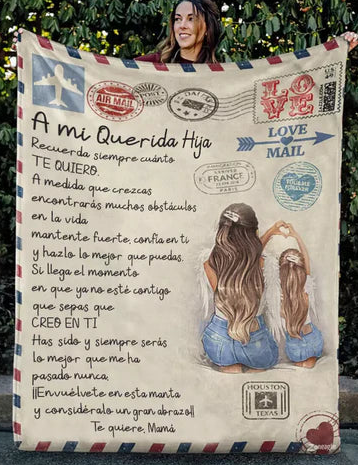 AIR MAIL
POST
LOVE
LOVE
MAIL
FRANCE
PARIS
A mi Querida Hija
Recuerda siempre cuánto
TE QUIERO.
A medida que crezcas
encontrarás muchos obstáculos
en la vida
mantente fuerte, confía en ti
y hazlo lo mejor que puedas.
Si llega el momento
en que ya no esté contigo
que sepas que
CREO EN TI
Has sido y siempre serás
lo mejor que me ha
pasado nunca.
¡¡Envuélvete en esta manta
y considéralo un gran abrazo!!
Te quiere, Mamá
HOUSTON
TEXAS